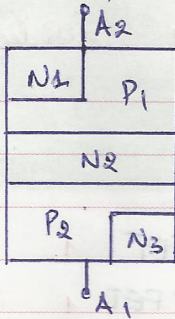 A2
N1
P1
N2
P2
N3
A1